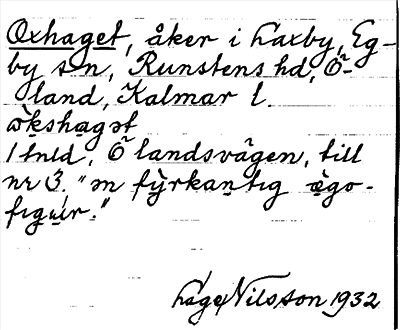 Oxhaget, åker i Laxby, Eg-
by sn, Runstens hd, Ö-
land, Kalmar l.
ò̀kshagət
1 tnld, Ö landsvägen, till
nr 3. "ən fỳrkantıg ägo-
figur."
Åge Nilsson 1932